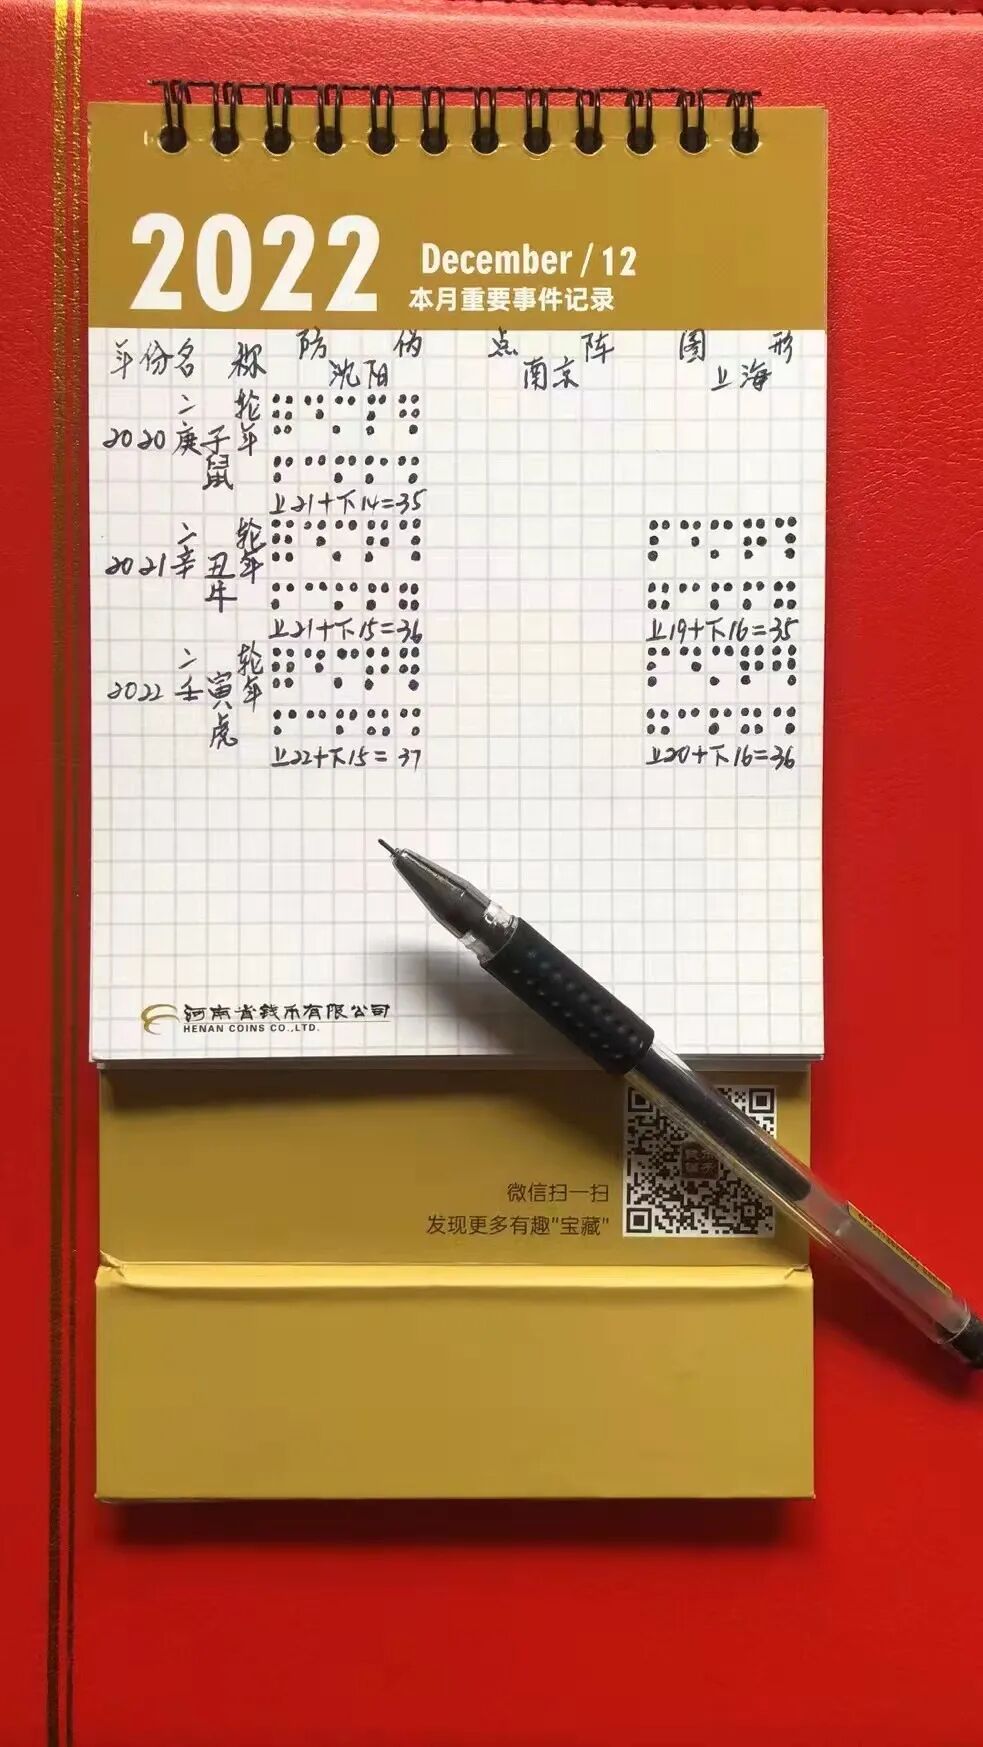 2022 December / 12
本月重要事件记录
年份名 称 防 伪 点 阵 图 形
沈阳 南京 上海
二 轮
2020 庚子年
鼠
上21+下14=35
二 轮
2021 辛丑年
牛
上21+下15=36 上19+下16=35
二 轮
2022 壬寅年
虎
上22+下15=37 上20+下16=36
河南省钱币有限公司
HENAN COINS CO.,LTD.
微信扫一扫
发现更多有趣"宝藏"